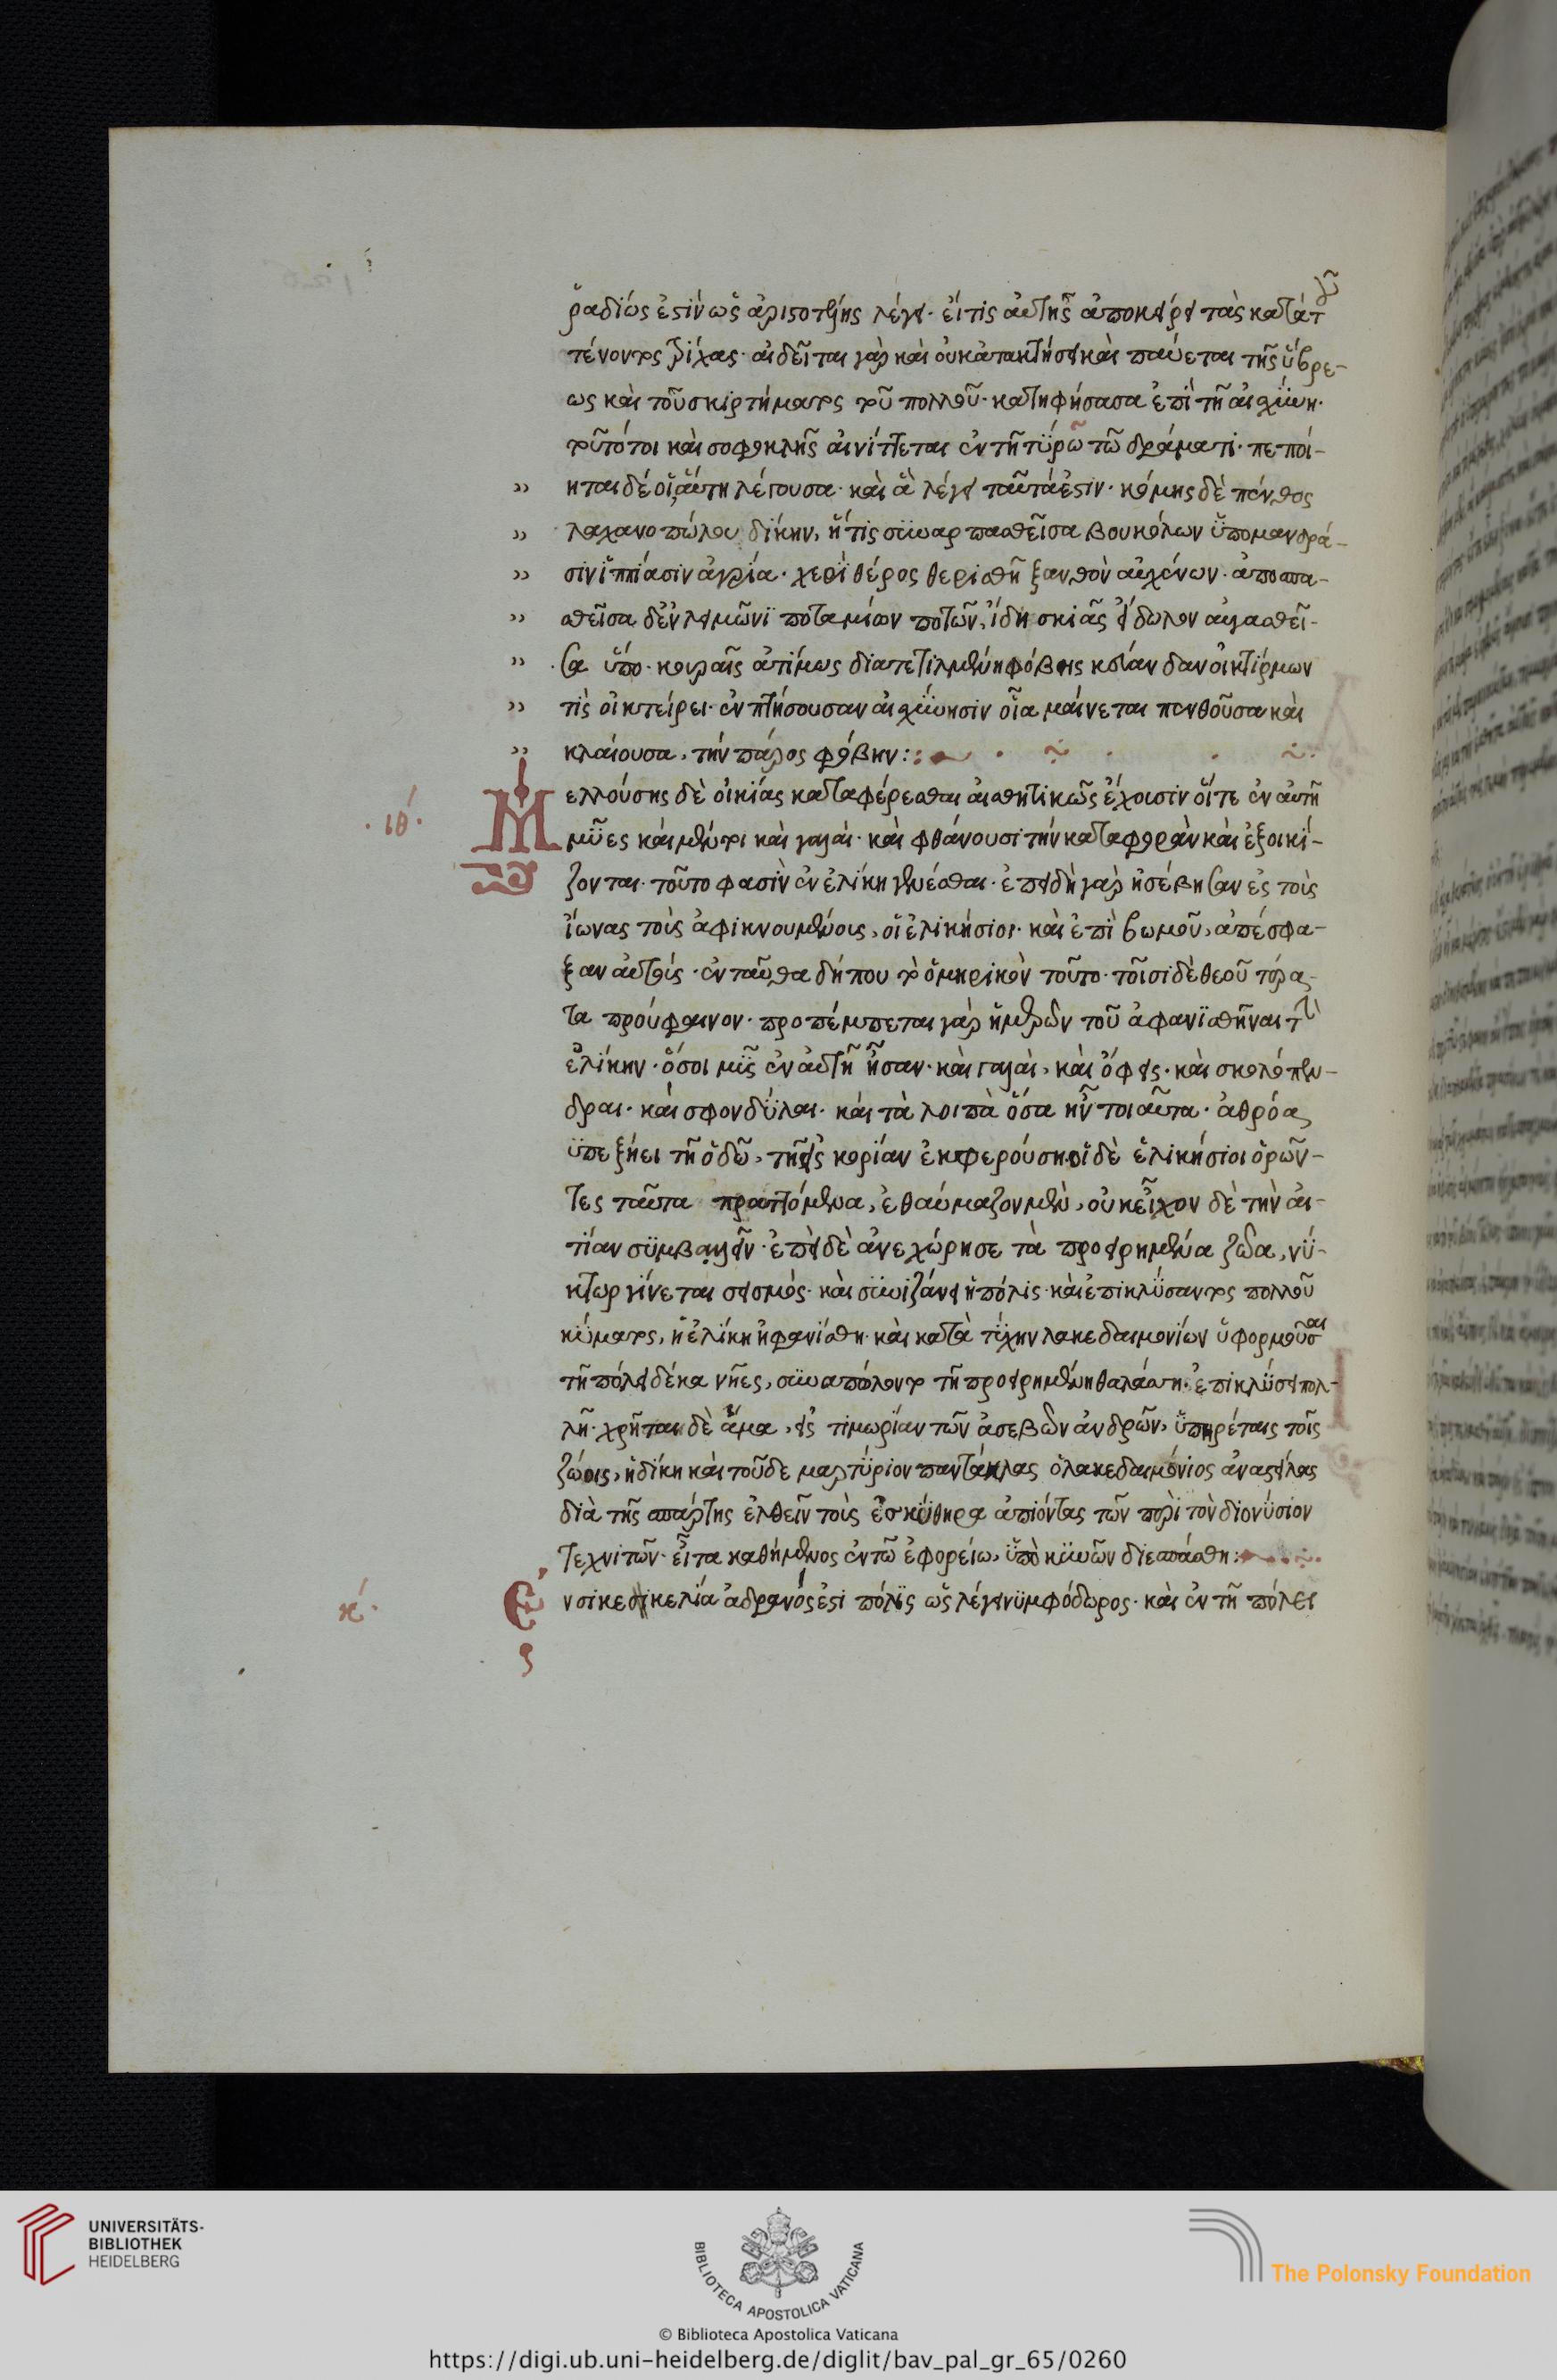 ῥαδίως ἐστὶν ὡς ἀριστοτέλης λέγει· εἴ τις αὐτῆς ἀποκείρει τὰς κατὰ τῶν
τένοντος τρίχας· αἰδεῖται γὰρ καὶ οὐκ ἀτακτήσει καὶ παύεται τῆς ὕβρε-
ως καὶ τοῦ σκιρτήματος τοῦ πολλοῦ· κατηφήσασα ἐπὶ τῇ αἰσχύνῃ·
τοῦτό τοι καὶ σοφοκλῆς αἰνίττεται ἐν τῇ τυροῖ τῷ δράματι· πεποί-
ηται δέ οἱ αὕτη λέγουσα· καὶ ἃ λέγει ταῦτά ἐστιν· κόμης δὲ πένθος
λαχανοπώλου δίκην, ἥτις συναρπασθεῖσα βουκόλων ὑπομανδρά-
σιν ἱππίασιν ἀγρία· χερὶ θέρος θερισθῇ ξανθὸν αὐχένων· ἀποσπα-
σθεῖσα δ' ἐν λειμῶνι ποταμίων ποτῶν, ἴδη σκιᾶς εἴδωλον αὐγασθεῖ-
σα ὑπο· κουραῖς ἀτίμως διατετιλμένη φόβης κἂν δαν οἰκτίρμων
τὶς οἰκτείρει· ἐν πτήσουσαν αἰσχύνησιν οἷα μαίνεται πενθοῦσα καὶ
κλαίουσα, τὴν πάρος φόβην:
.ιθ.
Μελλούσης δὲ οἰκίας καταφέρεσθαι αἰσθητικῶς ἔχουσιν οἵ τε ἐν αὐτῇ
μῦες καὶ μέντοι καὶ γαλαῖ· καὶ φθάνουσι τὴν καταφορὰν καὶ ἐξοικί-
ζονται· τοῦτο φασὶν ἐν ἑλίκῃ γενέσθαι· ἐπειδὴ γὰρ ἠσέβησαν ἐς τοὺς
ἴωνας τοὺς ἀφικνουμένους, οἱ ἑλικήσιοι· καὶ ἐπὶ βωμοῦ, ἀπέσφα-
ξαν αὐτούς· ἐνταῦθα δήπου τὸ ὁμηρικὸν τοῦτο· τοῖσι δὲ θεοῦ τέρα-
τα προύφαινον· προπέμπεται γὰρ ἡμερῶν τοῦ ἀφανισθῆναι τὴν
ἑλίκην· ὅσοι μῦς ἐν αὐτῇ ἦσαν· καὶ γαλαῖ, καὶ ὄφεις· καὶ σκολόπεν-
δραι· καὶ σφονδύλαι· καὶ τὰ λοιπὰ ὅσα ἦν τοιαῦτα· ἀθρόα
ὑπεξήει τῇ ὁδῷ, τῇ ἐς κορίαν ἐκφερούσῃ οἱ δὲ ἑλικήσιοι ὁρῶν-
τες ταῦτα πραττόμενα, ἐθαύμαζον μὲν, οὐκ εἶχον δὲ τὴν αἰ-
τίαν συμβαλεῖν· ἐπεὶ δὲ ἀνεχώρησε τὰ προειρημένα ζῷα, νύ-
κτωρ γίνεται σεισμός· καὶ συνιζάνει ἡ πόλις· καὶ ἐπικλύσαντος πολλοῦ
κύματος, ἡ ἑλίκη ἠφανίσθη· καὶ κατὰ τύχην λακεδαιμονίων ὑφορμοῦσαι
τῇ πόλει δέκα νῆες, συναπώλοντο τῇ προειρημένῃ θαλάσσῃ· ἐπικλύσει πολ-
λῇ· χρῆται δὲ ἅμα, εἰς τιμωρίαν τῶν ἀσεβῶν ἀνδρῶν, ὑπηρέταις τοῖς
ζώοις, ἡ δίκη καὶ τοῦδε μαρτύριον παντάκλας ὁ λακεδαιμόνιος ἀναστείλας
διὰ τῆς σπάρτης ἐλθεῖν τοὺς ἐς κύθηρα ἀπιόντας τῶν περὶ τὸν διονύσιον
τεχνιτῶν· εἶτα καθήμενος ἐν τῷ ἐφορείῳ, ὑπὸ κυνῶν διεσπάσθη:
κ.
Ἐν σικεσικελίᾳ ἀδρανός ἐστι πόλις ὡς λέγει νυμφόδωρος· καὶ ἐν τῇ πόλει
UNIVERSITÄTS-
BIBLIOTHEK
HEIDELBERG
BIBLIOTECA APOSTOLICA VATICANA
The Polonsky Foundation
© Biblioteca Apostolica Vaticana
https://digi.ub.uni-heidelberg.de/diglit/bav_pal_gr_65/0260